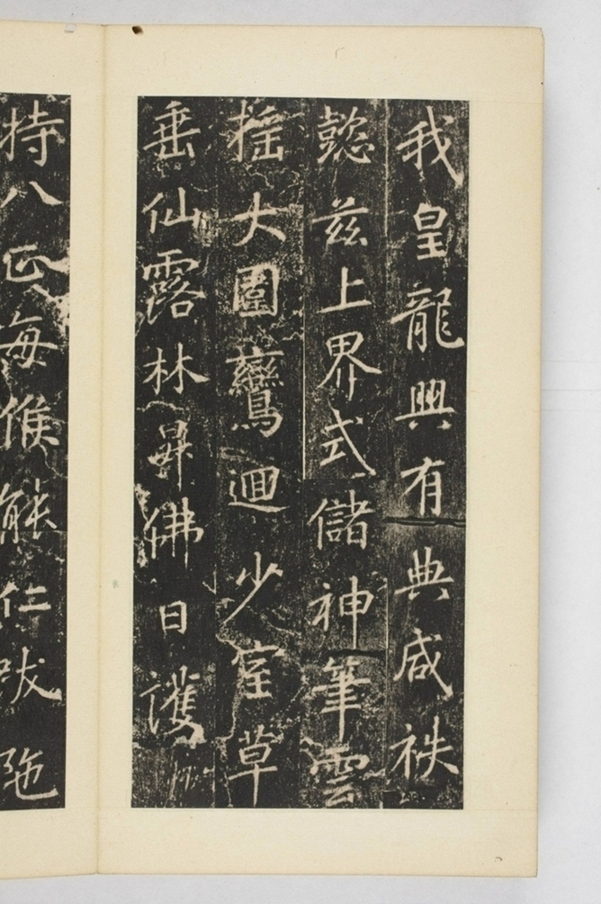 我皇龍興有典咸袟
懿兹上界式儲神筆雲
搖大圍鸞迴少室草
垂仙露林昇佛日護
持八正每候能仁跋陁